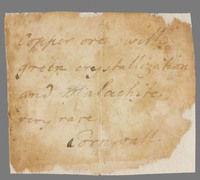 Copper ore with
green crystallization
and Malachite.
very rare
Cornwall.